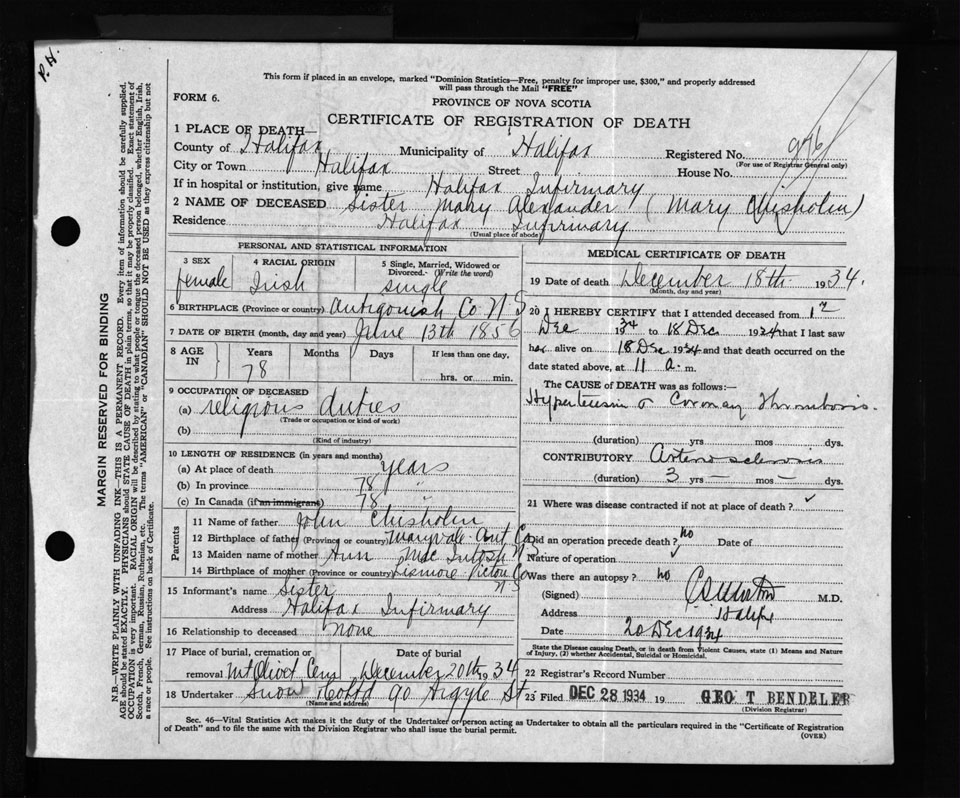 P.H.
This form if placed in an envelope, marked "Dominion Statistics—Free, penalty for improper use, $300," and properly addressed
will pass through the Mail "FREE"
FORM 6.
PROVINCE OF NOVA SCOTIA
CERTIFICATE OF REGISTRATION OF DEATH
1 PLACE OF DEATH—
County of Halifax Municipality of Halifax Registered No.
(For use of Registrar General only)
City or Town Halifax Street House No.
If in hospital or institution, give name Halifax Infirmary
2 NAME OF DECEASED Sister Mary Alexander (Mary Chisholm)
Residence Halifax Infirmary
(Usual place of abode)
PERSONAL AND STATISTICAL INFORMATION
3 SEX 4 RACIAL ORIGIN 5 Single, Married, Widowed or
Divorced.- (Write the word)
female Irish single
6 BIRTHPLACE (Province or country) Antigonish Co N S
7 DATE OF BIRTH (month, day and year) June 13th 1856
8 AGE IN Years Months Days If less than one day,
78 hrs. or min.
9 OCCUPATION OF DECEASED
(a) religious duties
(Trade or occupation or kind of work)
(b)
(Kind of industry)
10 LENGTH OF RESIDENCE (in years and months)
(a) At place of death years
(b) In province 78 "
(c) In Canada (if an immigrant) 78 "
Parents
11 Name of father John Chisholm
12 Birthplace of father (Province or country) Maryvale Ant Co
13 Maiden name of mother Ann Mac Intosh N S
14 Birthplace of mother (Province or country) Lismore Pictou Co
N S
15 Informant's name Sister
Address Halifax Infirmary
16 Relationship to deceased none
17 Place of burial, cremation or Date of burial
removal Mt Olivet Cem December 20th 1934
18 Undertaker Snow & Co Ltd 90 Argyle St
(Name and address)
MEDICAL CERTIFICATE OF DEATH
19 Date of death December 18th 1934.
(Month, day and year)
20 I HEREBY CERTIFY that I attended deceased from 17
Dec 1934 to 18 Dec 1934 that I last saw
her alive on 18 Dec 1934 and that death occurred on the
date stated above, at 11 a. m.
The CAUSE of DEATH was as follows:—
Hypertension & Coronary Thrombosis.
(duration) yrs mos dys.
CONTRIBUTORY Arteriosclerosis
(duration) 3 yrs — mos — dys.
21 Where was disease contracted if not at place of death? ✓
Did an operation precede death? no Date of
Nature of operation
Was there an autopsy? no
(Signed) M.D.
Address Halifax
Date 20 Dec 1934
State the Disease causing Death, or in death from Violent Causes, state (1) Means and Nature
of Injury, (2) whether Accidental, Suicidal or Homicidal.
22 Registrar's Record Number
23 Filed DEC 28 1934 19 GEO T BENDELER
(Division Registrar)
Sec. 46—Vital Statistics Act makes it the duty of the Undertaker or person acting as Undertaker to obtain all the particulars required in the "Certificate of Registration
of Death" and to file the same with the Division Registrar who shall issue the burial permit.
(OVER)
MARGIN RESERVED FOR BINDING
N.B.—WRITE PLAINLY WITH UNFADING INK—THIS IS A PERMANENT RECORD. Every item of information should be carefully supplied.
AGE should be stated EXACTLY. PHYSICIANS should STATE CAUSE OF DEATH in plain terms, so that it may be properly classified. Exact statement of
OCCUPATION is very important. RACIAL ORIGIN will be described by stating to what people or tongue the deceased person belonged, whether English, Irish,
Scotch, French, German, Russian, Ruthenian, etc. The terms "AMERICAN" or "CANADIAN" SHOULD NOT BE USED as they express citizenship but not
a race or people. See instructions on back of Certificate.